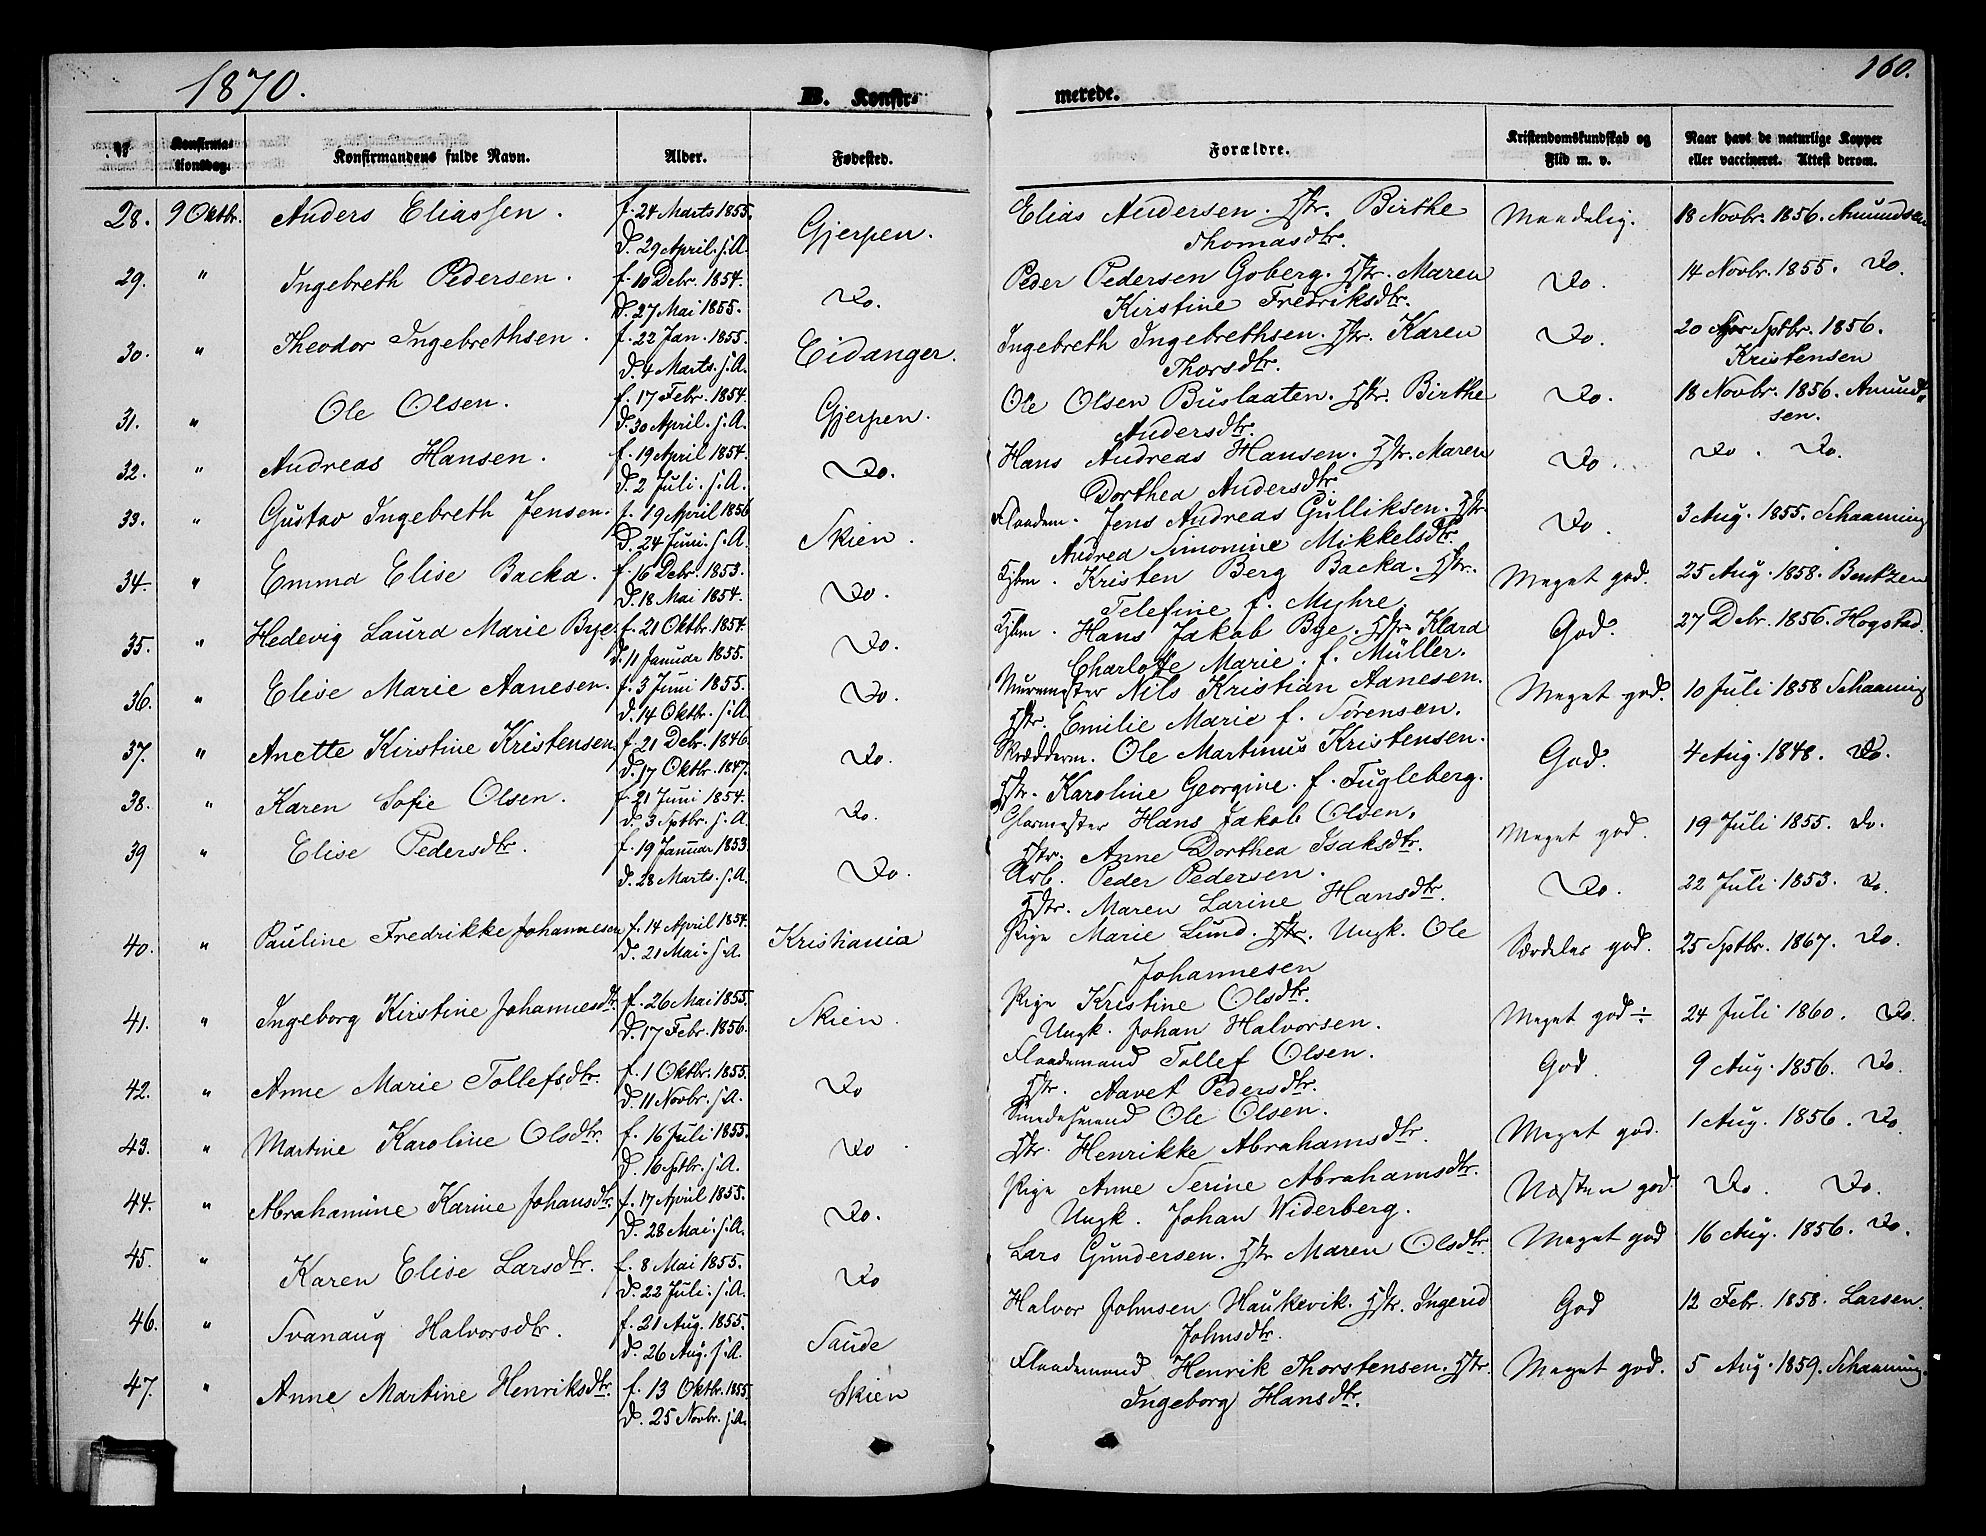 1870.
B. Konfir-
merede.
160.
№
Konfirma-
tionsdag.
Konfirmandens fulde Navn.
Alder.
Fødested.
Forældre.
Kristendomskundskab og
Flid m. v.
Naar havt de naturlige Kopper
eller vaccineret. Attest derom.
28. 9 Oktbr. Anders Eliassen. f. 24 Marts 1855. Gjerpen. Elias Andersen. Hstr. Birthe Maadelig. 18 Novbr. 1856. Amundsen
d. 29 April. s.A. Thomasdtr.
29. " Ingebreth Pedersen. f. 10 Debr. 1854. Do. Peder Pedersen Goberg. Hstr. Maren Do. 14 Novbr. 1855. Do.
d. 27 Mai 1855. Kirstine Fredriksdtr.
30. " Theodor Ingebrethsen. f. 22 Jan. 1855. Eidanger. Ingebreth Ingebrethsen. Hstr. Karen Do. 20 Sptbr. 1856.
d. 4 Marts. s.A. Thorsdtr. Kristensen
31. " Ole Olsen. f. 17 Febr. 1854. Gjerpen. Ole Olsen Buslaaten. Hstr. Birthe Do. 18 Novbr. 1856. Amund-
d. 30 April. s.A. Andersdtr. sen.
32. " Andreas Hansen. f. 19 April 1854. Do. Hans Andreas Hansen. Hstr. Maren Do. Do. Do.
d. 2 Juli. s.A. Dorthea Andersdtr.
33. " Gustav Ingebreth Jensen. f. 19 April 1856 Skien. Flaadem. Jens Andreas Gulliksen. Hstr. Do. 3 Aug. 1855. Schaaning
d. 24 Juni. s.A. Andrea Simonine Mikkelsdtr.
34. " Emma Elise Backa. f. 16 Debr. 1853. Do. Kjbm. Kristen Berg Backa. Hstr. Meget god. 25 Aug. 1858. Bentzen
d. 18 Mai 1854. Telefine f. Myhre
35. " Hedevig Laura Marie Bye f. 21 Oktbr. 1854. Do. Kjbm. Hans Jakob Bye. Hstr. Klara God. 27 Debr. 1856. Hogstad.
d. 11 Januar 1855. Charlotte Marie. f. Müller.
36. " Elise Marie Aanesen. f. 3 Juni 1855. Do. Murmester Nils Kristian Aanesen. Meget god. 10 Juli 1858 Schaaning
d. 14 Oktbr. s.A. Hstr. Emilie Marie f. Sørensen.
37. " Anette Kirstine Kristensen f. 21 Debr. 1846. Do. Skrædderm. Ole Martinus Kristensen. God. 4 Aug. 1848. Do.
d. 17 Oktbr. 1847. Hstr. Karoline Georgine. f. Fugleberg.
38. " Karen Sofie Olsen. f. 21 Juni 1854. Do. Glarmester Hans Jakob Olsen. Meget god. 19 Juli 1855. Do.
d. 3 Sptbr. s.A. Hstr. Anne Dorthea Isaksdtr.
39 " Elise Pedersdtr. f. 19 Januar 1853. Do. Arb. Peder Pedersen. Do. 22 Juli 1853. Do.
d. 28 Marts. s.A. Hstr. Maren Larine Hansdtr.
40. " Pauline Fredrikke Johannesen f. 14 April 1854. Kristiania Pige Marie Lund. Hstr. Ungk. Ole Særdeles god. 25 Sptbr. 1867. Do.
d. 21 Mai. s.A. Johannesen
41. " Ingeborg Kirstine Johannesdtr. f. 26 Mai 1855. Skien. Pige Kristine Olsdtr. Meget god ÷ 24 Juli 1860. Do.
d. 17 Febr. 1856. Ungk. Johan Halvorsen.
42. " Anne Marie Tollefsdtr. f. 1 Oktbr. 1855. Do Flaademand Tollef Olsen. God. 9 Aug. 1856. Do.
d. 11 Novbr. s.A. Hstr. Aavet Pedersdtr.
43. " Martine Karoline Olsdtr. f. 16 Juli 1855. Do Smedesvend Ole Olsen. Meget god. 1 Aug. 1856. Do
d. 16 Sptbr. s.A. Hstr. Henrikke Abrahamsdtr.
44. " Abrahamine Karine Johansdtr. f. 17 April 1855. Do. Pige Anne Serine Abrahamsdtr. Næsten god. Do. Do.
d. 28 Mai. s.A. Ungk. Johan Widerberg.
45. " Karen Elise Larsdtr. f. 8 Mai 1855. Do Lars Gundersen. Hstr Maren Olsdtr. Meget god 16 Aug. 1856. Do.
d. 22 Juli. s.A.
46. " Svanaug Halvorsdtr. f. 21 Aug. 1855. Saude Halvor Johnsen Haukevik. Hstr. Ingerid God 12 Febr. 1858. Larsen.
d. 26 Aug. s.A. Johnsdtr.
47. " Anne Martine Henriksdtr. f. 13 Oktbr. 1855. Skien Flaademand Henrik Thorstensen. Hstr. Meget god. 5 Aug. 1859. Schaaning.
d. 25 Novbr. s.A. Ingeborg Hansdtr.